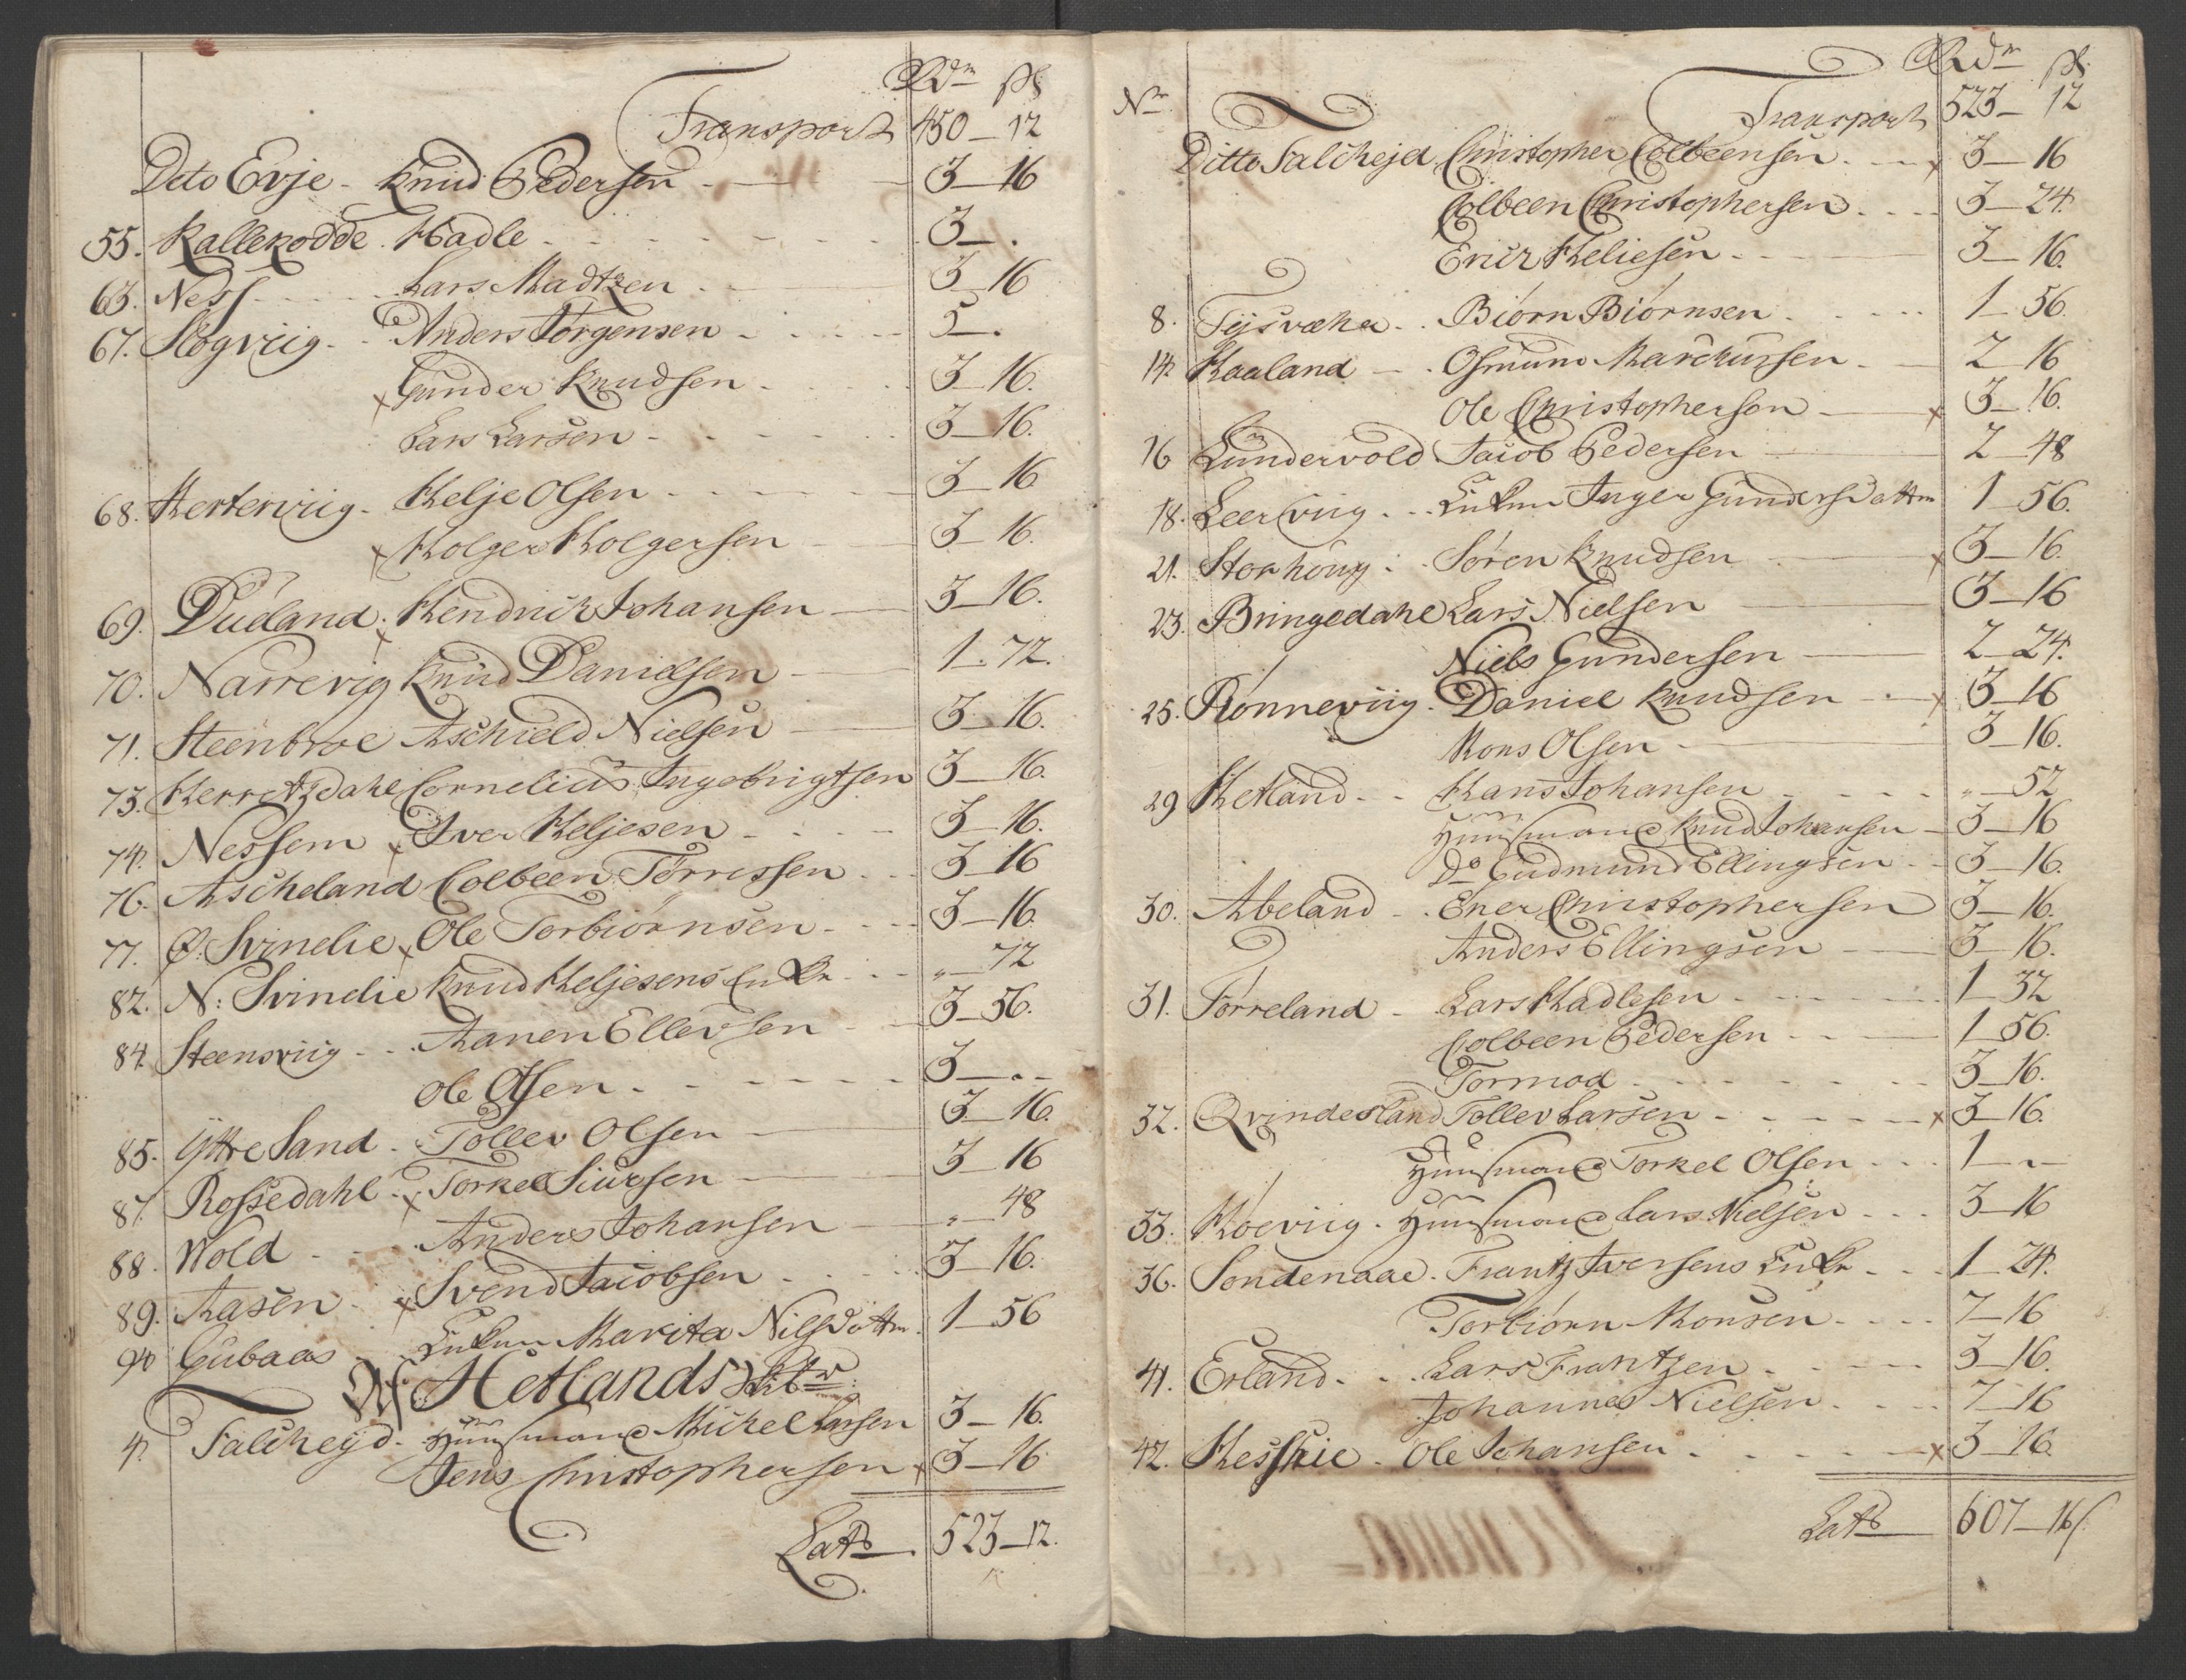 Rdr ß
Transport 450 – 12
Dito Evje – Knud Pedersen 3 – 16
55. Kallekodde. Hadle 3 – .
63. Ness Lars Madtzen 3 – 16
67. Slogviig Anders Jørgensen 5 – .
x Gunder Knudsen 3 – 16.
Lars Larsen 3 – 16.
68. Herterviig – Helje Olsen 3 – 16
x Holger Holgersen 3 – 16.
69. Dueland. Hendrich Johansen 3 – 16.
70. Narrevig x Knud Danielsen 1. 72.
71. Steenbroe Aschield Nielsen 3 – 16.
73. Herretzdahl Cornelius Ingebrigtsen 3 – 16.
74. Nessem x Iver Heljesen 3 – 16.
76. Ascheland Colbeen Torressen 3 – 16
77. Ø: Svinelie x Ole Torbiørnsen 3 – 16.
82. N: Svinelie Knud Heljesens Enke „ – 72
84. Steensviig Aanen Ellevsen 3 – 56.
Ole Olsen 3 – . –
85. Ÿttre Sand – Tollev Olsen 3 – 16.
87. Rossedahl – x Torkel Siursen 3 – 16
88. Wold Anders Johansen „ – 48
89. Aasen – x Svend Jacobsen 3 – 16.
90 Gubaas Enken Marita Nilsdotter 1 – 56
Af Hetlands Skibr:
4 Falchejd – Huusmand Michel Larsen 3 – 16.
Jens Christophersen x 3 – 16.
Lats 523 – 12.
Rdr ß
Nr Transport 523 – 12
Ditto Falchejd Christopher Colbeensen x 3 – 16
Colbeen Christophersen 3 – 24.
Erich Heliesen 3 – 16.
8. Tysvæhr Biørn Biørnsen 1 – 56.
14. Haaland Osmund Marchussen 2 – 16
Ole Christophersen x 3 – 16.
16 Lundervold Jacob Pedersen 2 – 48
18. Leerviig Enken Inger Gundersdotter 1 – 56.
21. Storhoug Søren Knudsen x 3 – 16.
23. Bringedahl Lars Nielsen 3 – 16
Niels Gundersen 2 – 24.
25. Rønneviig. Daniel Knudsen x 3 – 16
Mons Olsen 3 – 16.
29 Hetland Hans Johansen „ – 52
Huusmand Knud Johansen 3 – 16
Do Gudmund Ellingsen 3 – 16.
30. Abeland Ener Christophersen 3 – 16.
Anders Ellingsen 3 – 16.
31. Førreland Lars Hadlesen 1 – 32
Colbeen Pedersen 1 – 56.
Tormod 3 – 16.
32. Qvindesland Tollev Larsen x 3 – 16.
Huusmand Torkel Olsen 1 – „ –
33. Høeviig. Huusmand Lars Nielsen 3 – 16
36. Søndenaae. Frantz Iversens Enke 1 – 24.
Torbiørn Monsen 2 – 16
41. Erland Lars Frantzen 3 – 16.
Johannes Nielsen 2 – 16
42. Hesthie – Ole Johansen x 3 – 16.
Lats 607 – 16